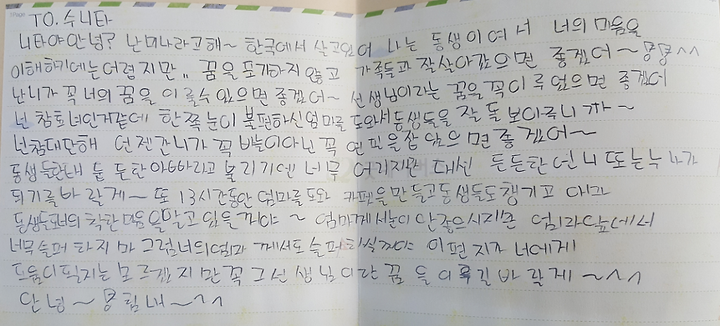 TO. 수니타
니타야 안녕? 난 미나라고해~ 한국에서 살고있어 나는 동생이 여서 너의 마음을
이해하기에는 어렵지만,, 꿈을 포기하지 않고 가족들과 잘살아갔으면 좋겠어~ ^^
난 니가 꼭 너의 꿈을 이룰수 있으면 좋겠어~ 선생님이라는 꿈을 꼭 이루었으면 좋겠어
넌 참 효녀인거같에 한쪽눈이 불편하신 엄마를 도와서 동생들을 잘 돌보아주니까~
넌참대단해 언젠간 니가 꼭 바늘이아닌 꼭 연필을잡았으면좋겠어~
동생들한테 듬직한 아빠라고 불리기엔 너무 어리지만 대신 든든한 언니 또는 누나가
되기를바랄게~ 또 13시간동안 엄마를 도와 카펫을만들고 동생들도챙기고 아마
동생들도너의 착한 마음을알고 있을꺼야~ 엄마께서눈이 안좋으시지만 엄마앞에서
너무 슬퍼 하지마 그럼너의엄마 께서도 슬퍼하실꺼야 이편지가 너에게
도움이될지는 모르겠지만꼭 그 선생님이란 꿈을 이루길 바랄게~^^
안녕~ 힘내~^^